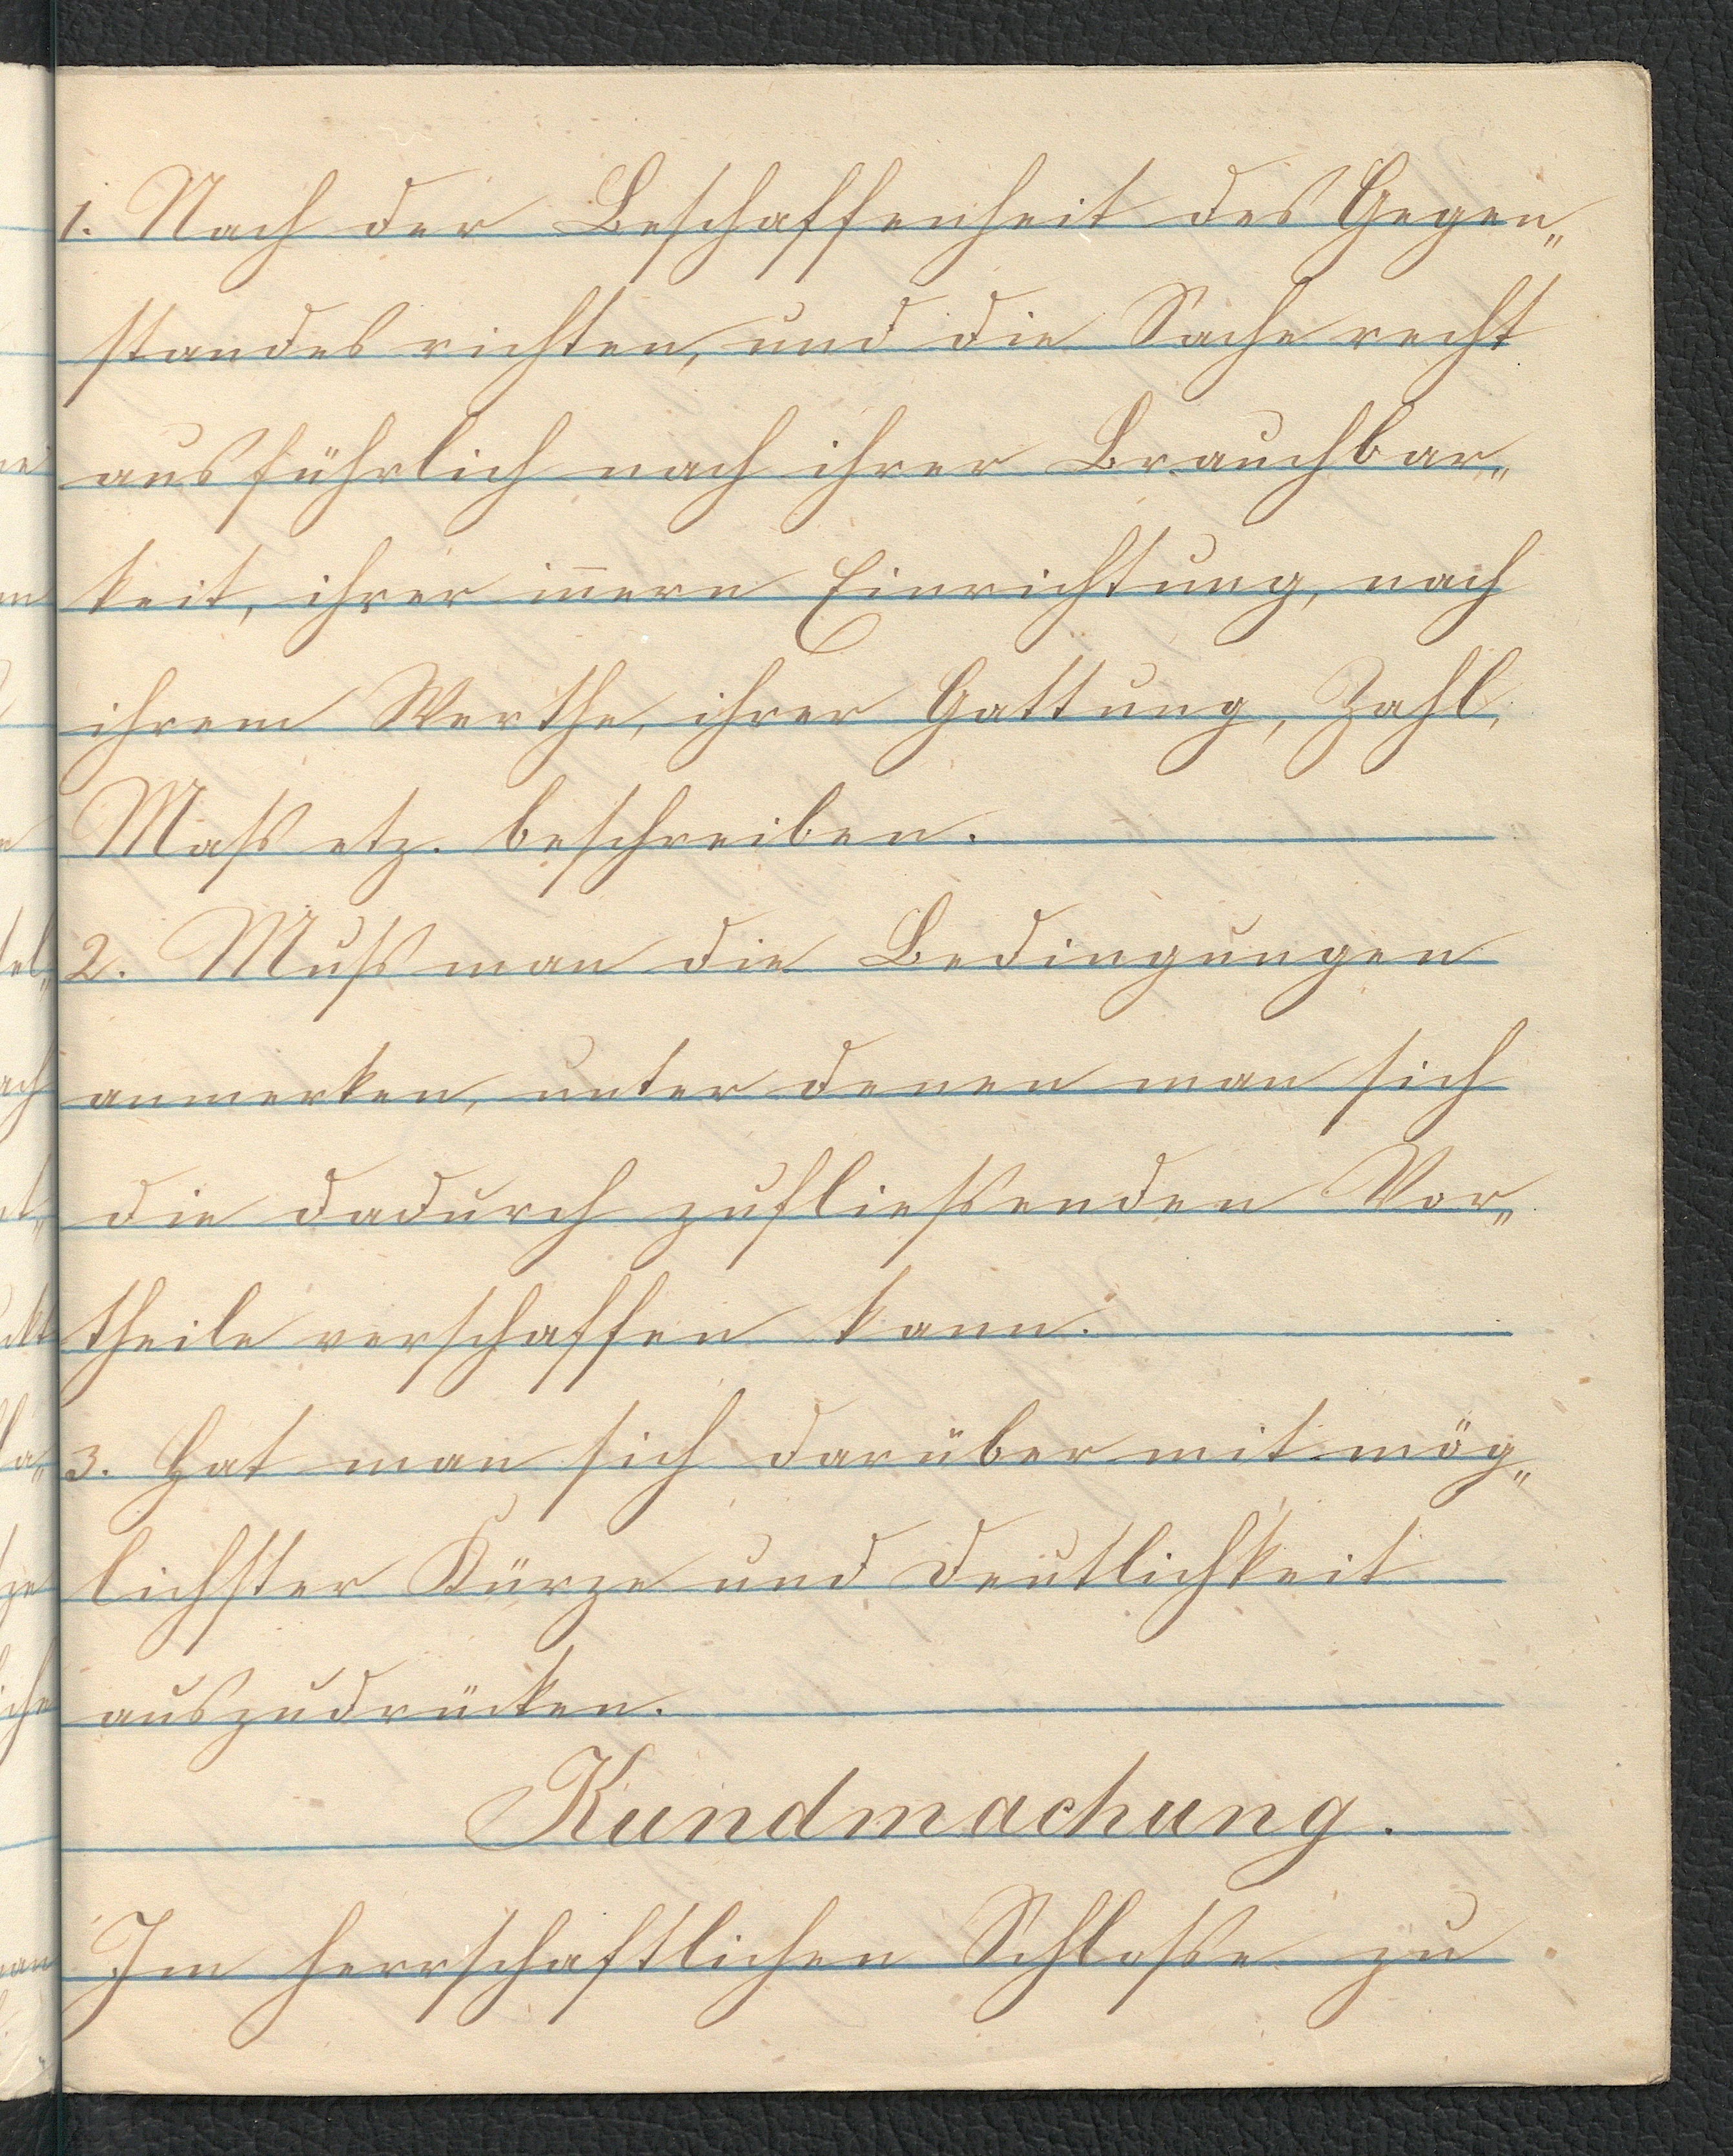 1. Nach der Beschaffenheit des Gegen„
standes richten, und die Sache recht
ausführlich nach ihrer Brauchbar„
keit, ihrer in̅ern Einrichtung, nach
ihrem Werthe, ihrer Gattung, Zahl,
Mass etz. beschreiben.
2. Muss man die Bedingungen
anmerken, unter denen man sich
die dadurch zufliessenden Vor„
theile verschaffen kann.
3. Hat man sich darüber mit mög„
lichster Kürze und Deutlichkeit
auszudrücken.
Kundmachung.
Im herrschaftlichen Schlosse zu